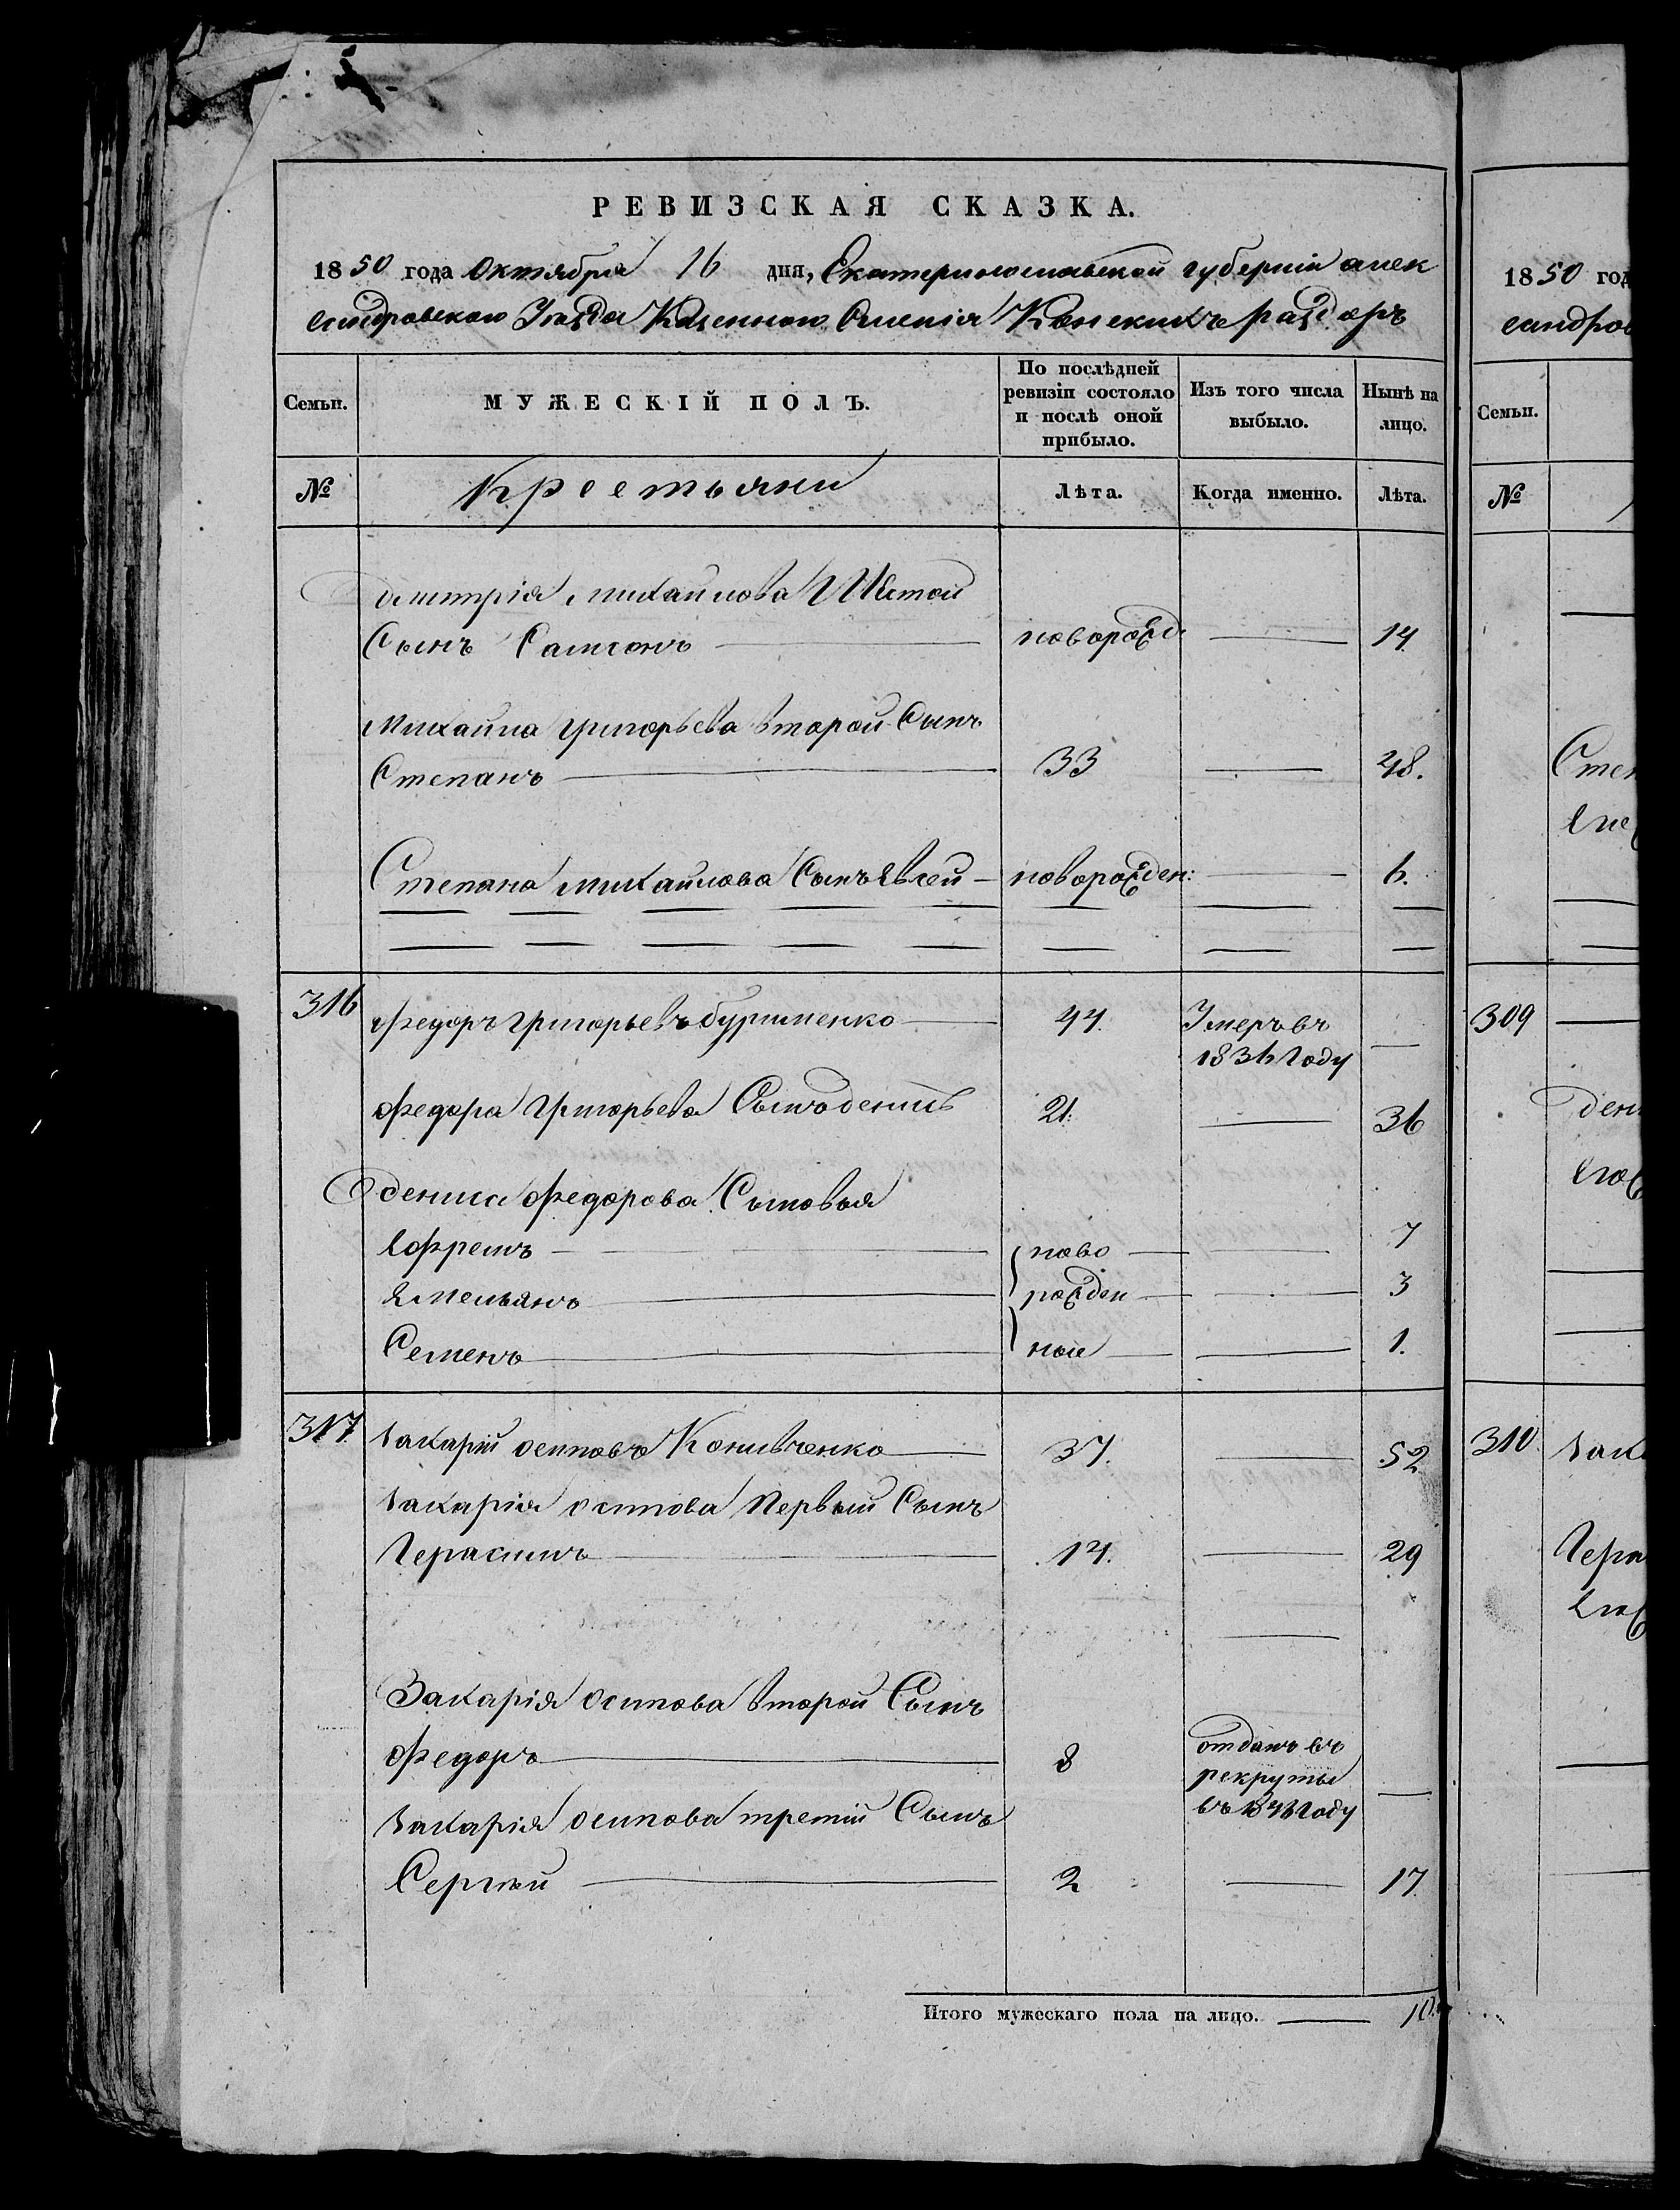 РЕВИЗСКАЯ СКАЗКА.
1850 года Октября 16 дня, Екатеринославской губернии алек
сандровского Уезда Казенного Имения Конских раздоръ
Семьи.
МУЖЕСКІЙ ПОЛЪ.
По послѣдней ревизіи состояло и послѣ оной прибыло.
Изъ того числа выбыло.
Нынѣ на лицо.
№
Крестьяни
Лѣта.
Когда именно.
Лѣта.
дмитрія михайлова Шестой
Сынъ Самсонъ новорожд. 14.
Михайла григорьева второй Сынъ
Степанъ 33 48.
Степана михайлова Сынъ Евсей новорожден: 6.
316 федоръ григорьевъ бурименко 44. Умеръ въ
1836 году
федора григорьева Сынъ денисъ 21. 36
дениса федорова Сыновья
Ефремъ ново 7
Емельянъ рожден 3
Семенъ ные 1.
317 Захарій осиповъ 37. 52
Захарія осипова Первый Сынъ
Герасимъ 14. 29
Захарія осипова второй Сынъ
федоръ 8 отданъ въ
рекруты
въ 1843 году
Захарія осипова третій Сынъ
Сергѣй 2 17.
Итого мужескаго пола на лицо. 10.
1850 год
сандров
Семьи.
№
Степ
309
ден
310 Заха
Гера